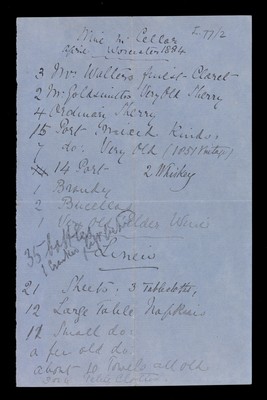 E.77/2
Wine in Cellar
April Worcester 1884
3 Mr Wallers finest Claret
2 Mr Goldsmiths Very Old Sherry
4 Ordinary Sherry
15 Port Kinds.
7 do. Very Old (1851 Vintage)
14 Port 2 Whiskey
1 Brandy
2 Bucellas
1 Very Old Elder Wine
35 bottles
Linen
21 Sheets. 3 Tablecloths,
12 Large Table Napkins
12 Small do.
a few old do.
about 10 Towels all old
Table Cloths